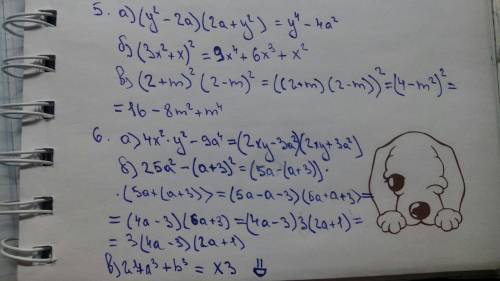 5. а) (y² - 2a)(2a + y²) = y⁴ - 4a²
б) (3x² + x)² = 9x⁴ + 6x³ + x²
в) (2+m)² (2-m)² = ((2+m)(2-m))² = (4-m²)² =
= 16 - 8m² + m⁴
6. а) 4x² · y² - 9a⁴ = (2xy - 3a²)(2xy + 3a²)
б) 25a² - (a+3)² = (5a - (a+3)) ·
· (5a + (a+3)) = (5a - a - 3)(5a + a + 3) =
= (4a - 3)(6a + 3) = (4a - 3) 3 (2a + 1) =
= 3 (4a - 3)(2a + 1)
в) 27a³ + b³ = х3